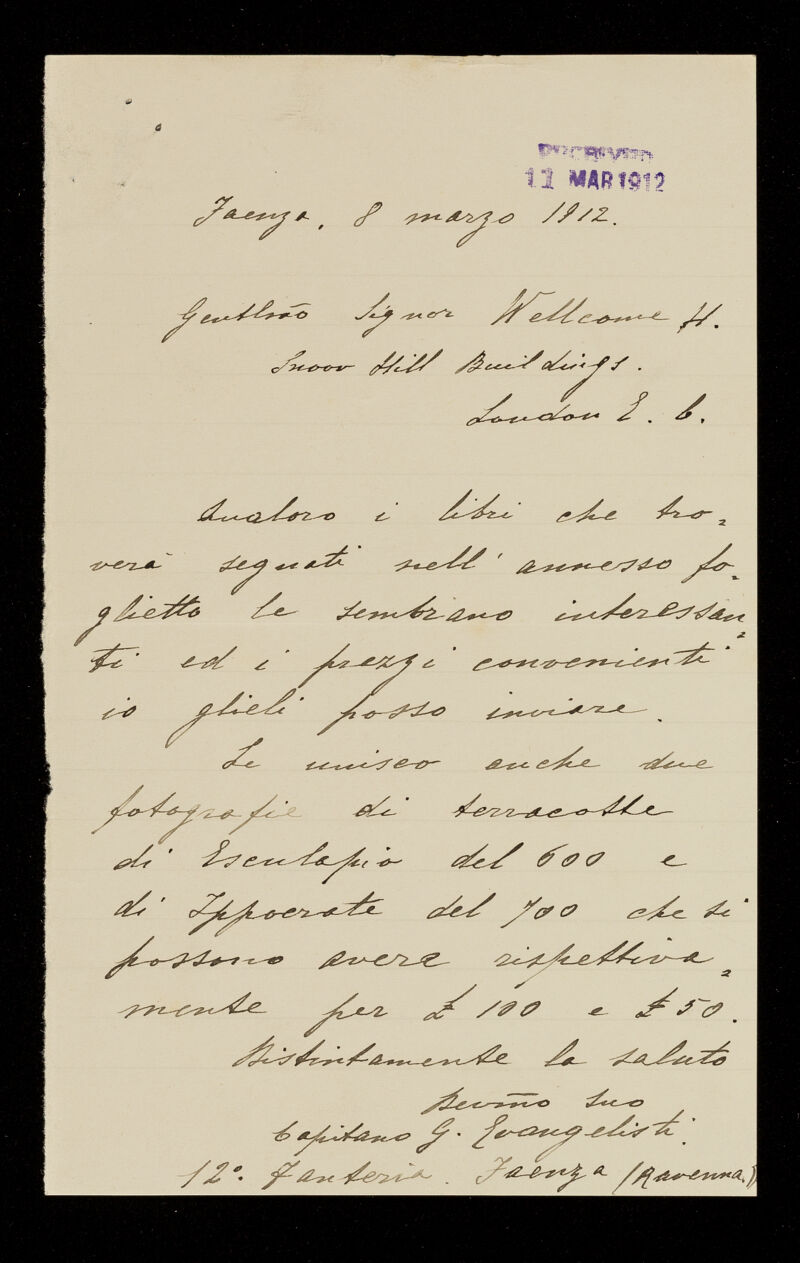 RECEIVED
11 MAR 1912
Faenza, 8 marzo 1912.
Gentilmo Signor Wellcome H.
Snoow Hill Buildings.
London E. C.
Qualoro i libri che tro=
verà segnati nell' annesso fo=
glietto le sembrano interessan=
ti ed i prezzi convenienti
io glieli posso inviare.
Le unisco anche due
fotografie di terracotte
di Esculapio del 600 e
di Ippocrate del 700 che si
possono avere rispettiva=
mente per £ 100 e £ 50.
Distintamente la saluto
Devmo Suo
Capitano G. Evangelisti.
12º. Fanteria. Faenza (Ravenna.)